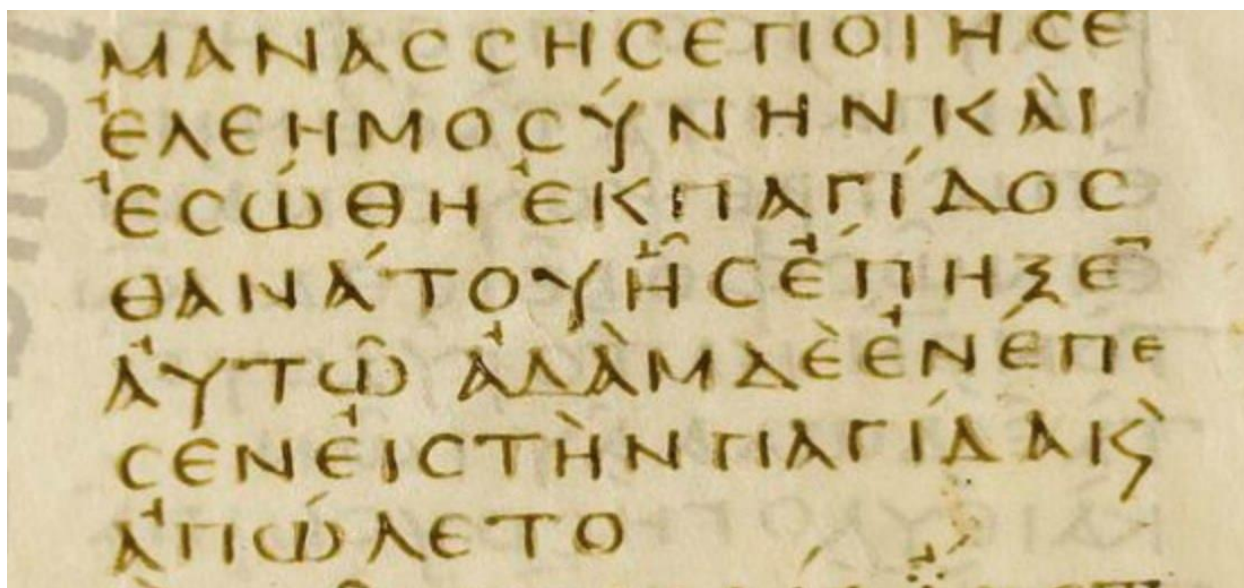 ΜΑΝΑϹϹΗϹΕΠΟΙΗϹΕ
ἘΛΕΗΜΟϹΎΝΗΝΚΑῚ
ἘϹΏΘΗ ἘΚΠΑΓΊΔΟϹ
ΘΑΝΆΤΟΥἯϹἜΠΗΞΕ̅
ἈΥΤΩ͂ ἈΔᾺΜΔῈἘΝΈΠΕ
ϹΕΝἘΙϹΤῊΝΠΑΓΊΔΑϏ̀
ἈΠΏΛΕΤΟ